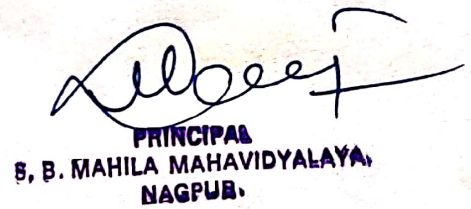 PRINCIPAL
S. B. MAHILA MAHAVIDYALAYA,
NAGPUR.